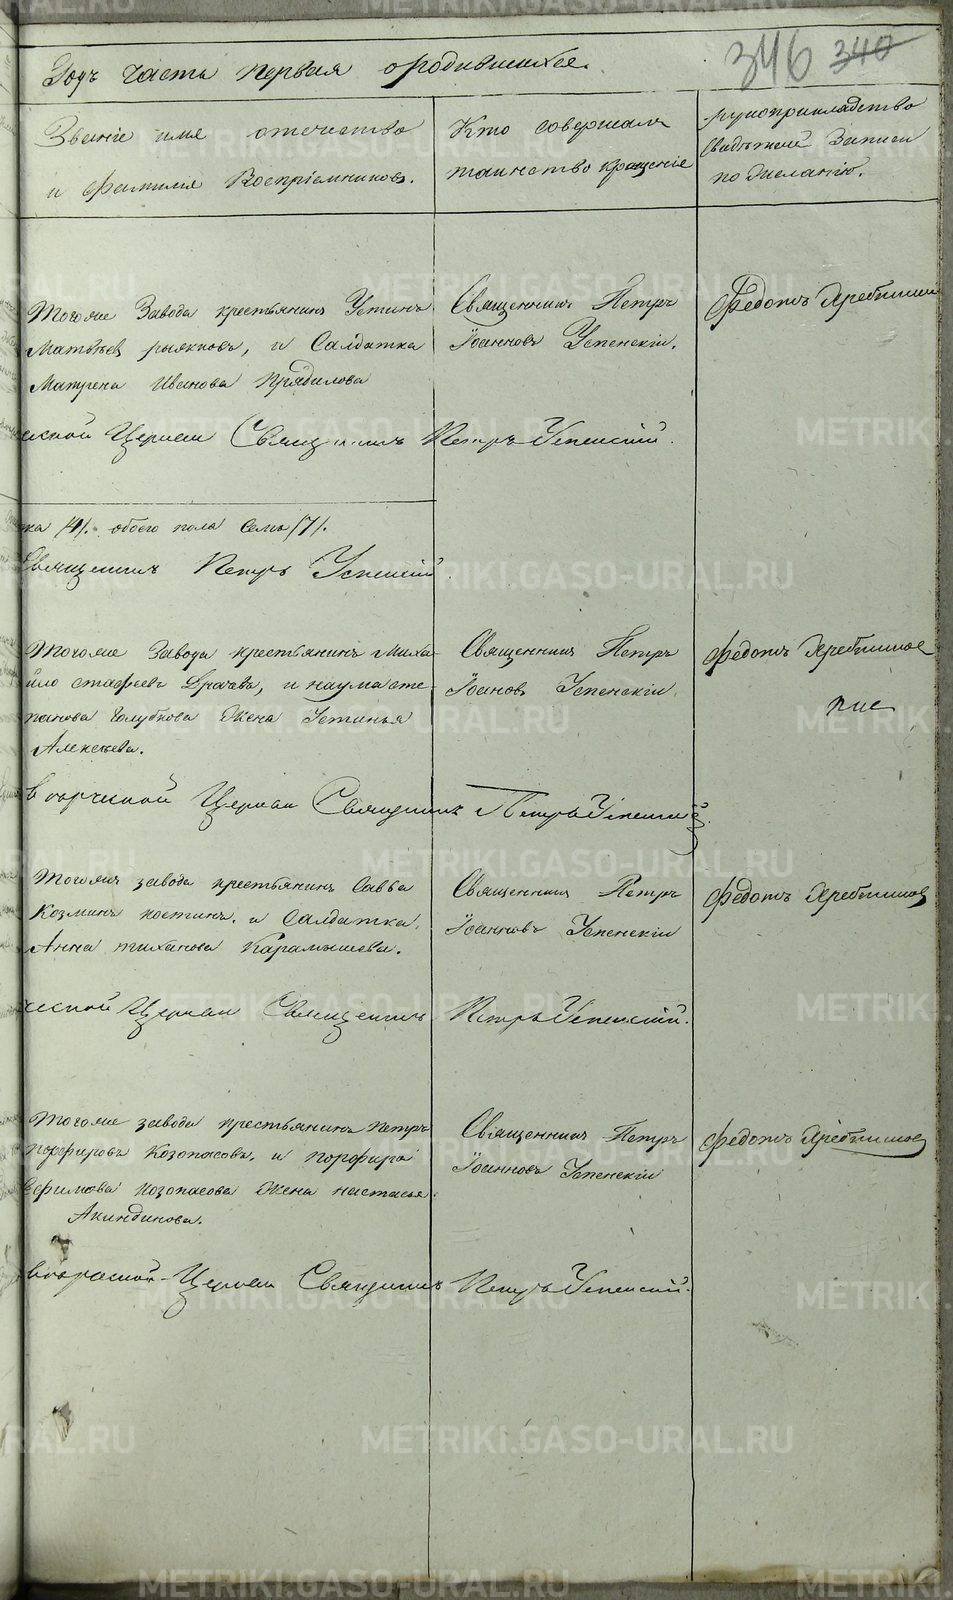 346 340
Годъ часть первая о родившихся.
Званіе имя отечество
и фамилія Воспріемниковъ.
Кто совершалъ
таинство крещеніе
рукоприкладство
свидѣтелей записи
по желанію.
Тогоже Завода крестьянинъ Устинъ
Матвѣевъ, и Салдатка
Матрена Иванова Прядилова
Священникъ Петръ
Іоанновъ Успенскій.
Федотъ
ской Церкви Священникъ Петръ Успенскій.
ка /4/. обоего пола семь /7/.
Священникъ Петръ Успенскій
Тогоже Завода крестьянинъ Миха
йло Драчевъ, и наума сте
панова Голубкова Жена Устинья
Алексѣева.
Священникъ Петръ
Іоановъ Успенскій.
Федотъ
Церкви Священникъ Петръ Успенскій.
Тогоже завода крестьянинъ Савва
Козминъ костинъ, и Салдатка
Анна тиханова Карамышева.
Священникъ Петръ
Іоанновъ Успенскій
Федотъ
ской Церкви Священникъ Петръ Успенскій.
Тогоже завода крестьянинъ Петръ
Порфировъ Козопасовъ, и порфира
ефимова Козопасова Жена настасья
Акиндинова.
Священникъ Петръ
Іоанновъ Успенскій
Федотъ
Церкви Священникъ Петръ Успенскій.
METRIKI.GASO-URAL.RU